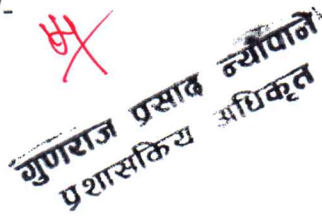 गुणराज प्रसाद न्यौपाने
प्रशासकिय अधिकृत